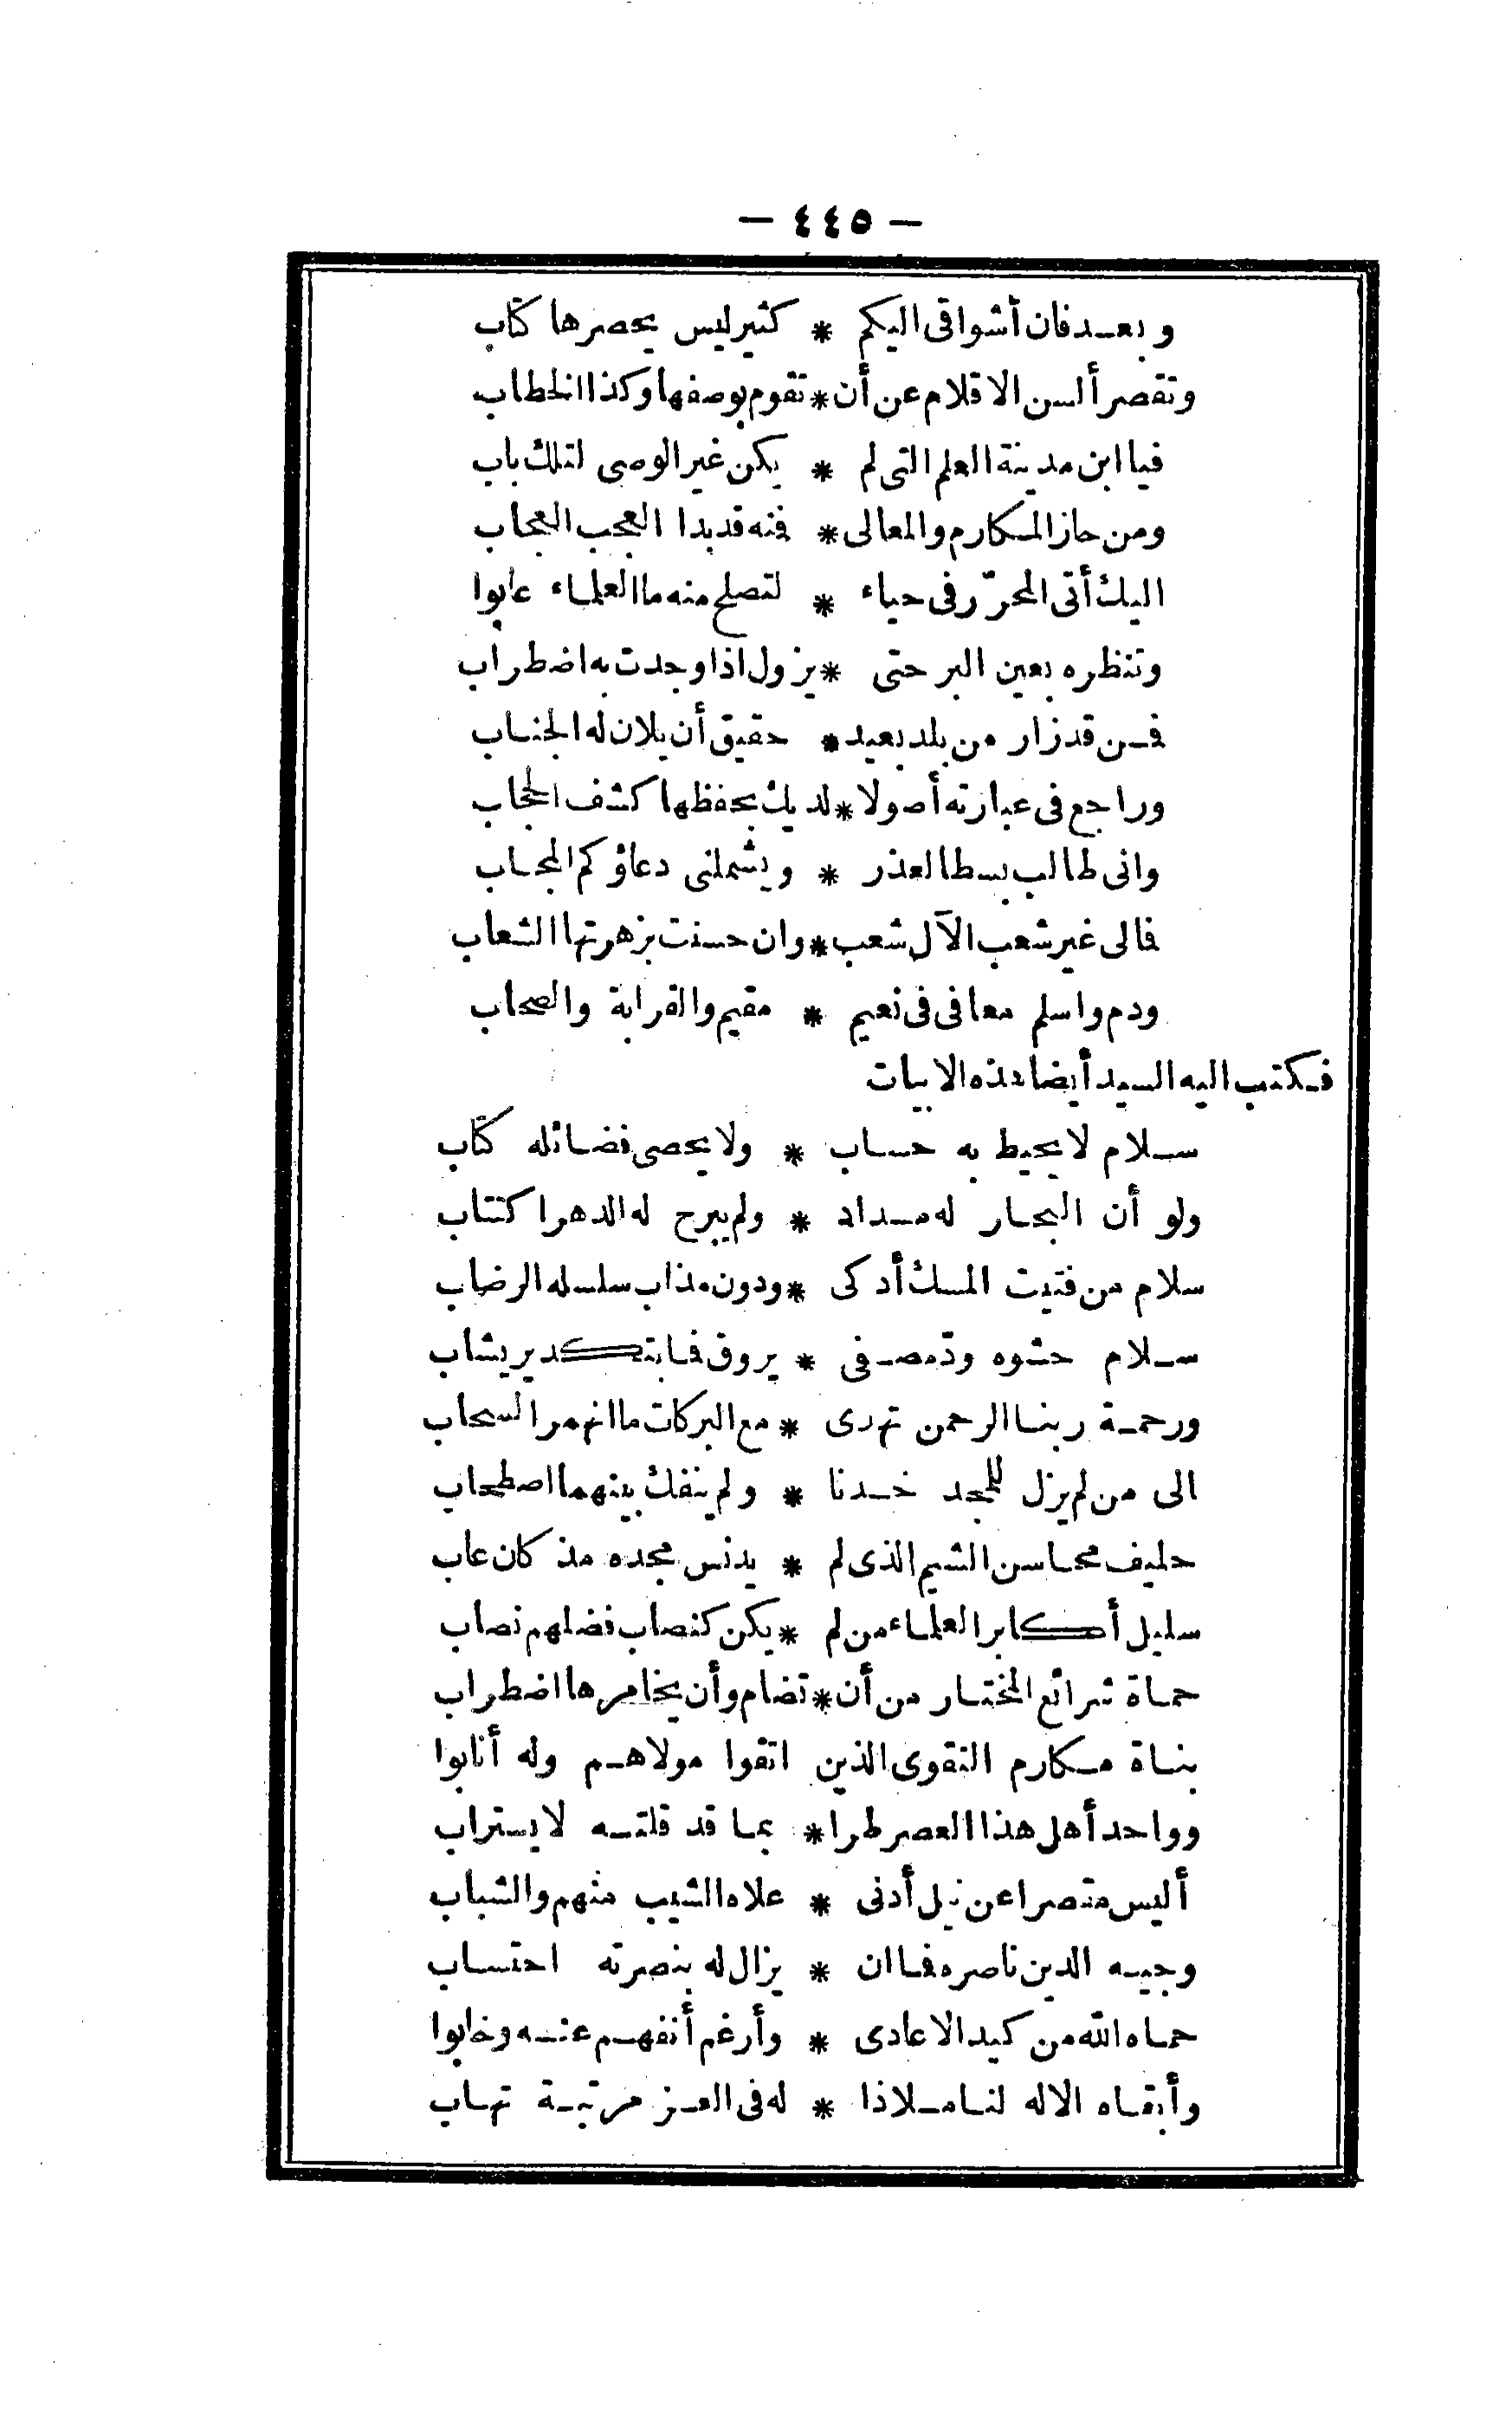 — ٤٤٥ —
وبعد فان أشواقى اليكم * كثير ليس يحصرها كتاب
وتقصر ألسن الاقلام عن أن * تقوم بوصفها وكذا الخطاب
فيا ابن مدينة العلم التى لم * يكن غير الوصى لتلك باب
ومن حاز المكارم والمعالى * فمنه قد بدا العجب العجاب
اليك أتى المحرّر فى حياء * لتصلح منه ما العلماء عابوا
وتنظره بعين البر حتى * يزول اذا وجدت به اضطراب
فمن قد زار من بلد بعيد * حقيق أن يلان له الجناب
وراجع فى عبارته أصولا * لديك بحفظها كشف الحجاب
وانى طالب بسطا لعذر * ويشملنى دعاؤكم المجاب
فالى غير شعب الآل شعب * وان حسنت بزهرتها الشعاب
ودم واسلم معافى فى نعيم * مقيم والقرابة والصحاب
فكتب اليه السيد أيضا هذه الابيات
سلام لا يحيط به حساب * ولا يحصى فضائله كتاب
ولو أن البحار له مداد * ولم يبرح له الدهر اكتتاب
سلام من فتيت المسك أذكى * ودون مذاب سلسله الرضاب
سلام حشوه ودّ مصفى * يروق فما بتكدير يشاب
ورحمة ربنا الرحمن تهدى * مع البركات ما انهمر السحاب
الى من لم يزل للمجد خدنا * ولم ينفك بينهما اصطحاب
حليف محاسن الشيم الذى لم * يدنس مجده مذ كان عاب
سليل أكابر العلماء من لم * يكن كنصاب فضلهم نصاب
حماة شرائع المختار من أن * تضام وأن يخامرها اضطراب
بناة مكارم التقوى الذين اتقوا مولاهم وله أنابوا
وواحد أهل هذا العصر طرا * بما قد قلته لا يستراب
أليس مقصرا عن نيل أدنى * علاه الشيب منهم والشباب
وجيه الدين ناصره فما ان * يزال له بنصرته احتساب
حماه الله من كيد الاعادى * وأرغم أنفهم عنه وخابوا
وأبقاه الاله لنا ملاذا * له فى العز مرتبة تهاب